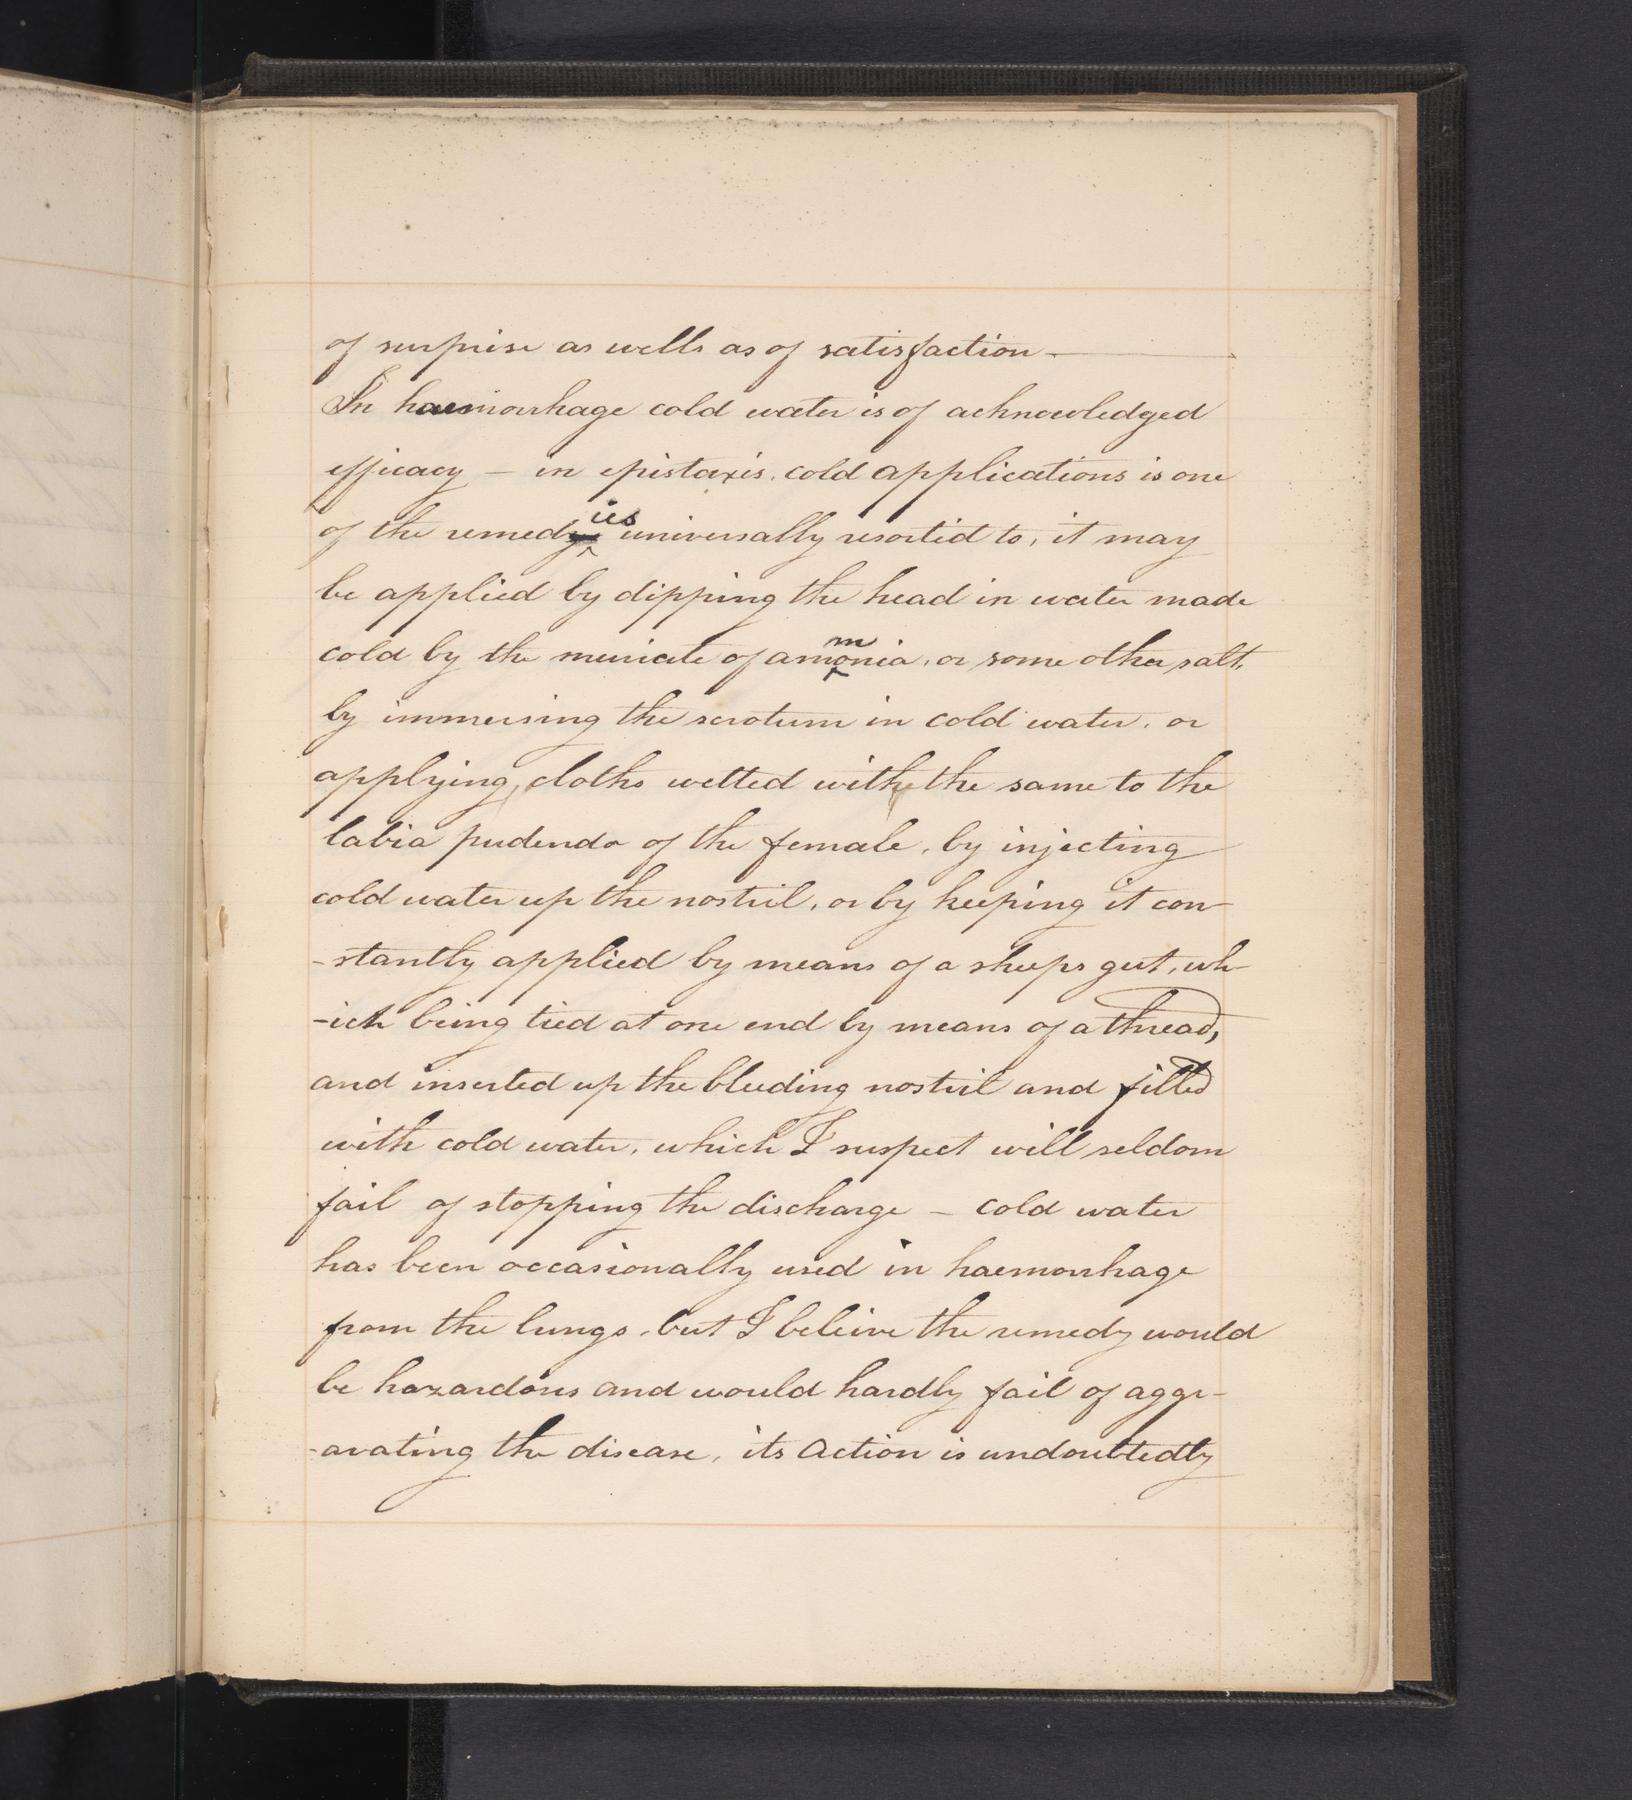 of surprise as wells as of satisfaction -
In haemorrhage cold water is of acknowledged
efficacy - in epistaxis. cold applications is one
of the remedies universally resorted to, it may
be applied by dipping the head in water made
cold by the muriate of ammonia, or some other salt,
by immersing the scrotum in cold water, or
applying, cloths wetted with the same to the
labia pudenda of the female, by injecting
cold water up the nostril, or by keeping it con-
-stantly applied by means of a sheeps gut, wh-
-ich being tied at one end by means of a thread,
and inserted up the bleeding nostril and filled
with cold water, which I suspect will seldom
fail of stopping the discharge - cold water
has been occasionally used in haemorrhage
from the lungs, but I beleive the remedy would
be hazardous and would hardly fail of aggr-
-avating the disease, its action is undoubtedly